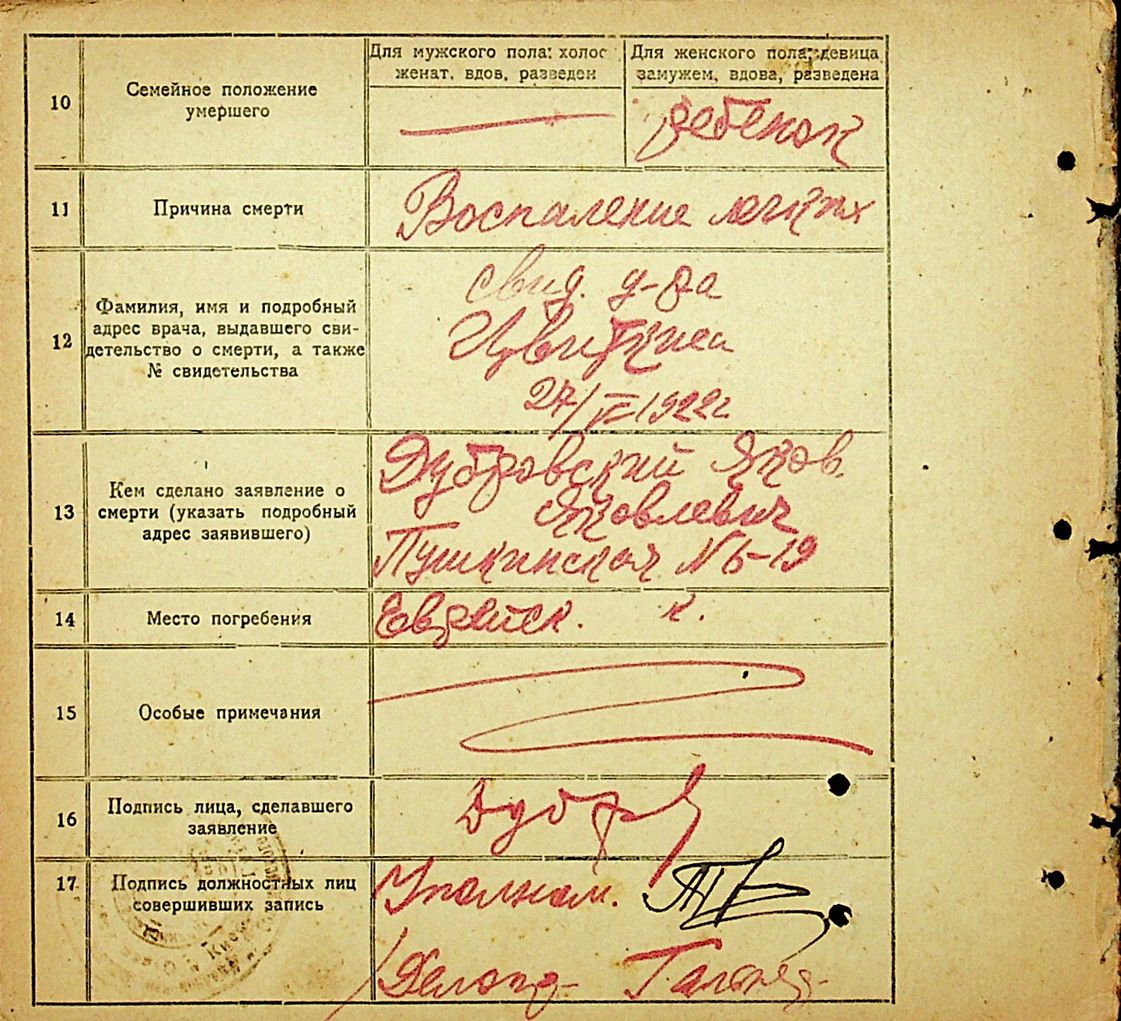 Для мужского пола: холос
женат. вдов, разведен
Для женского пола: девица
замужем, вдова, разведена
10
Семейное положение
умершего
ребенок
11
Причина смерти
Воспаление легких
12
Фамилия, имя и подробный
адрес врача, выдавшего сви-
детельство о смерти, а также
№ свидетельства
свид. д-ра
27/V 1922г
13
Кем сделано заявление о
смерти (указать подробный
адрес заявившего)
Дубровский Яков.
Яковлевич
Пушкинская №6-19
14
Место погребения
Еврейск. к.
15
Особые примечания
16
Подпись лица, сделавшего
заявление
Дубр
17
Подпись должностных лиц
совершивших запись
Уполном.
Делопр-